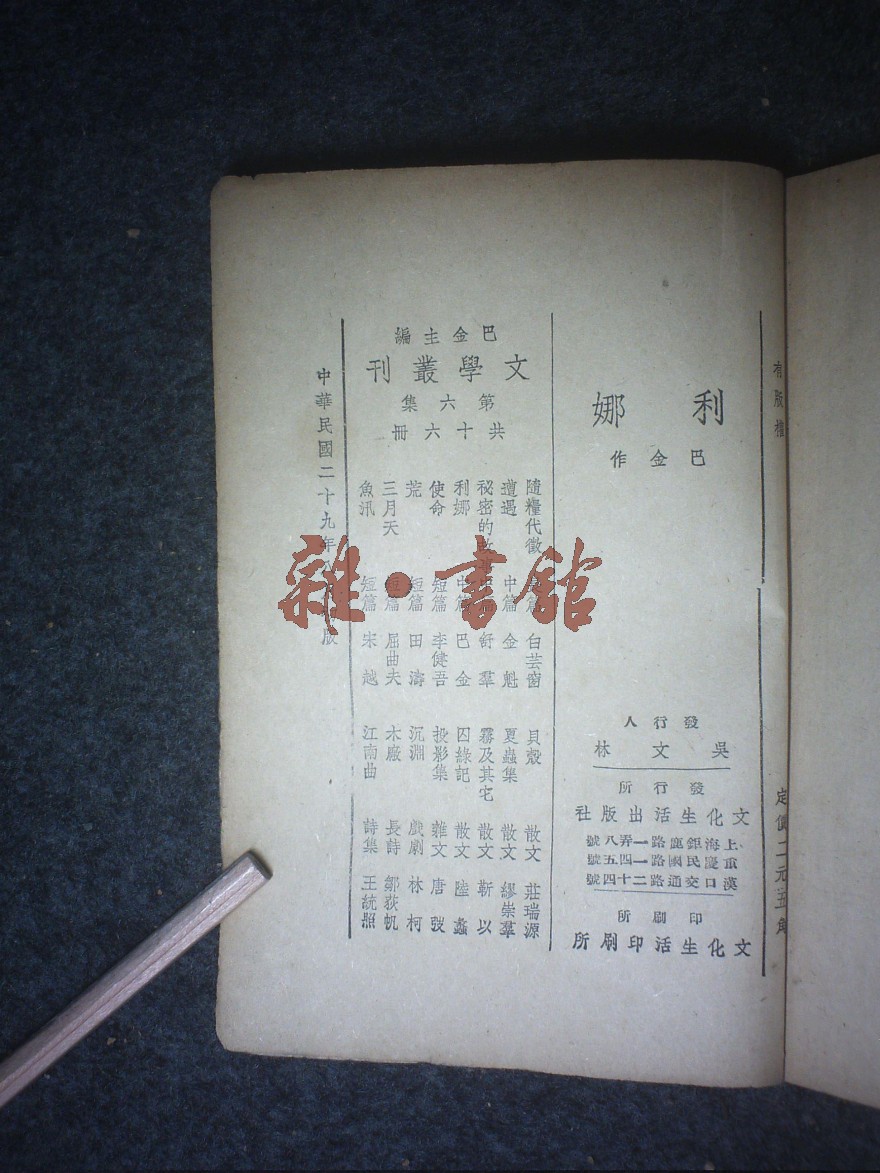 有版權
定價二元五角
利娜
巴金作
發行人
吳文林
發行所
文化生活出版社
上海鉅鹿路一弄八號
重慶民國路一四五號
漢口交通路二十四號
印刷所
文化生活印刷所
巴金主編
文學叢刊
第六集
共十六冊
隨糧代徵 篇 白芸窗
遭遇 中篇 金魁
秘密的故事 中篇 舒羣
利娜 中篇 巴金
使命 短篇 李健吾
荒 短篇 田濤
三月天 短篇 屈曲夫
魚汛 短篇 宋越
貝殼 散文 莊瑞源
夏蟲集 散文 繆崇羣
霧及其它 散文 靳以
囚綠記 散文 陸蠡
投影集 雜文 唐弢
沉淵 戲劇 林柯
木廠 長詩 鄒荻帆
江南曲 詩集 王統照
中華民國二十九年八月版
雜·書館